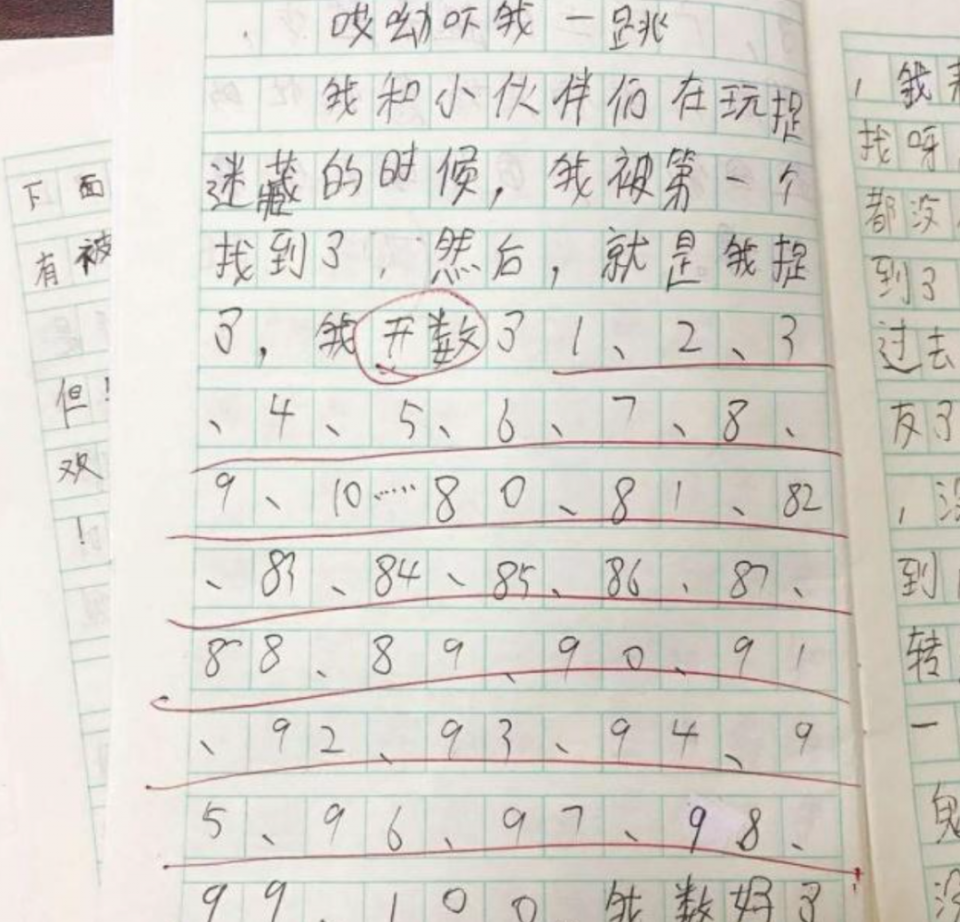 哎呦吓我一跳
我和小伙伴们在玩捉
迷藏的时候，我被第一个
找到了，然后，就是我捉
了，我开数了1、2、3
、4、5、6、7、8、
9、10……80、81、82
、83、84、85、86、87、
88、89、90、91
、92、93、94、9
5、96、97、98、
99、100，我数好了
下面
有被
但！
欢
！
，我
找呀
都没
到了
过去
友了
，没
到
转
一
鬼
没